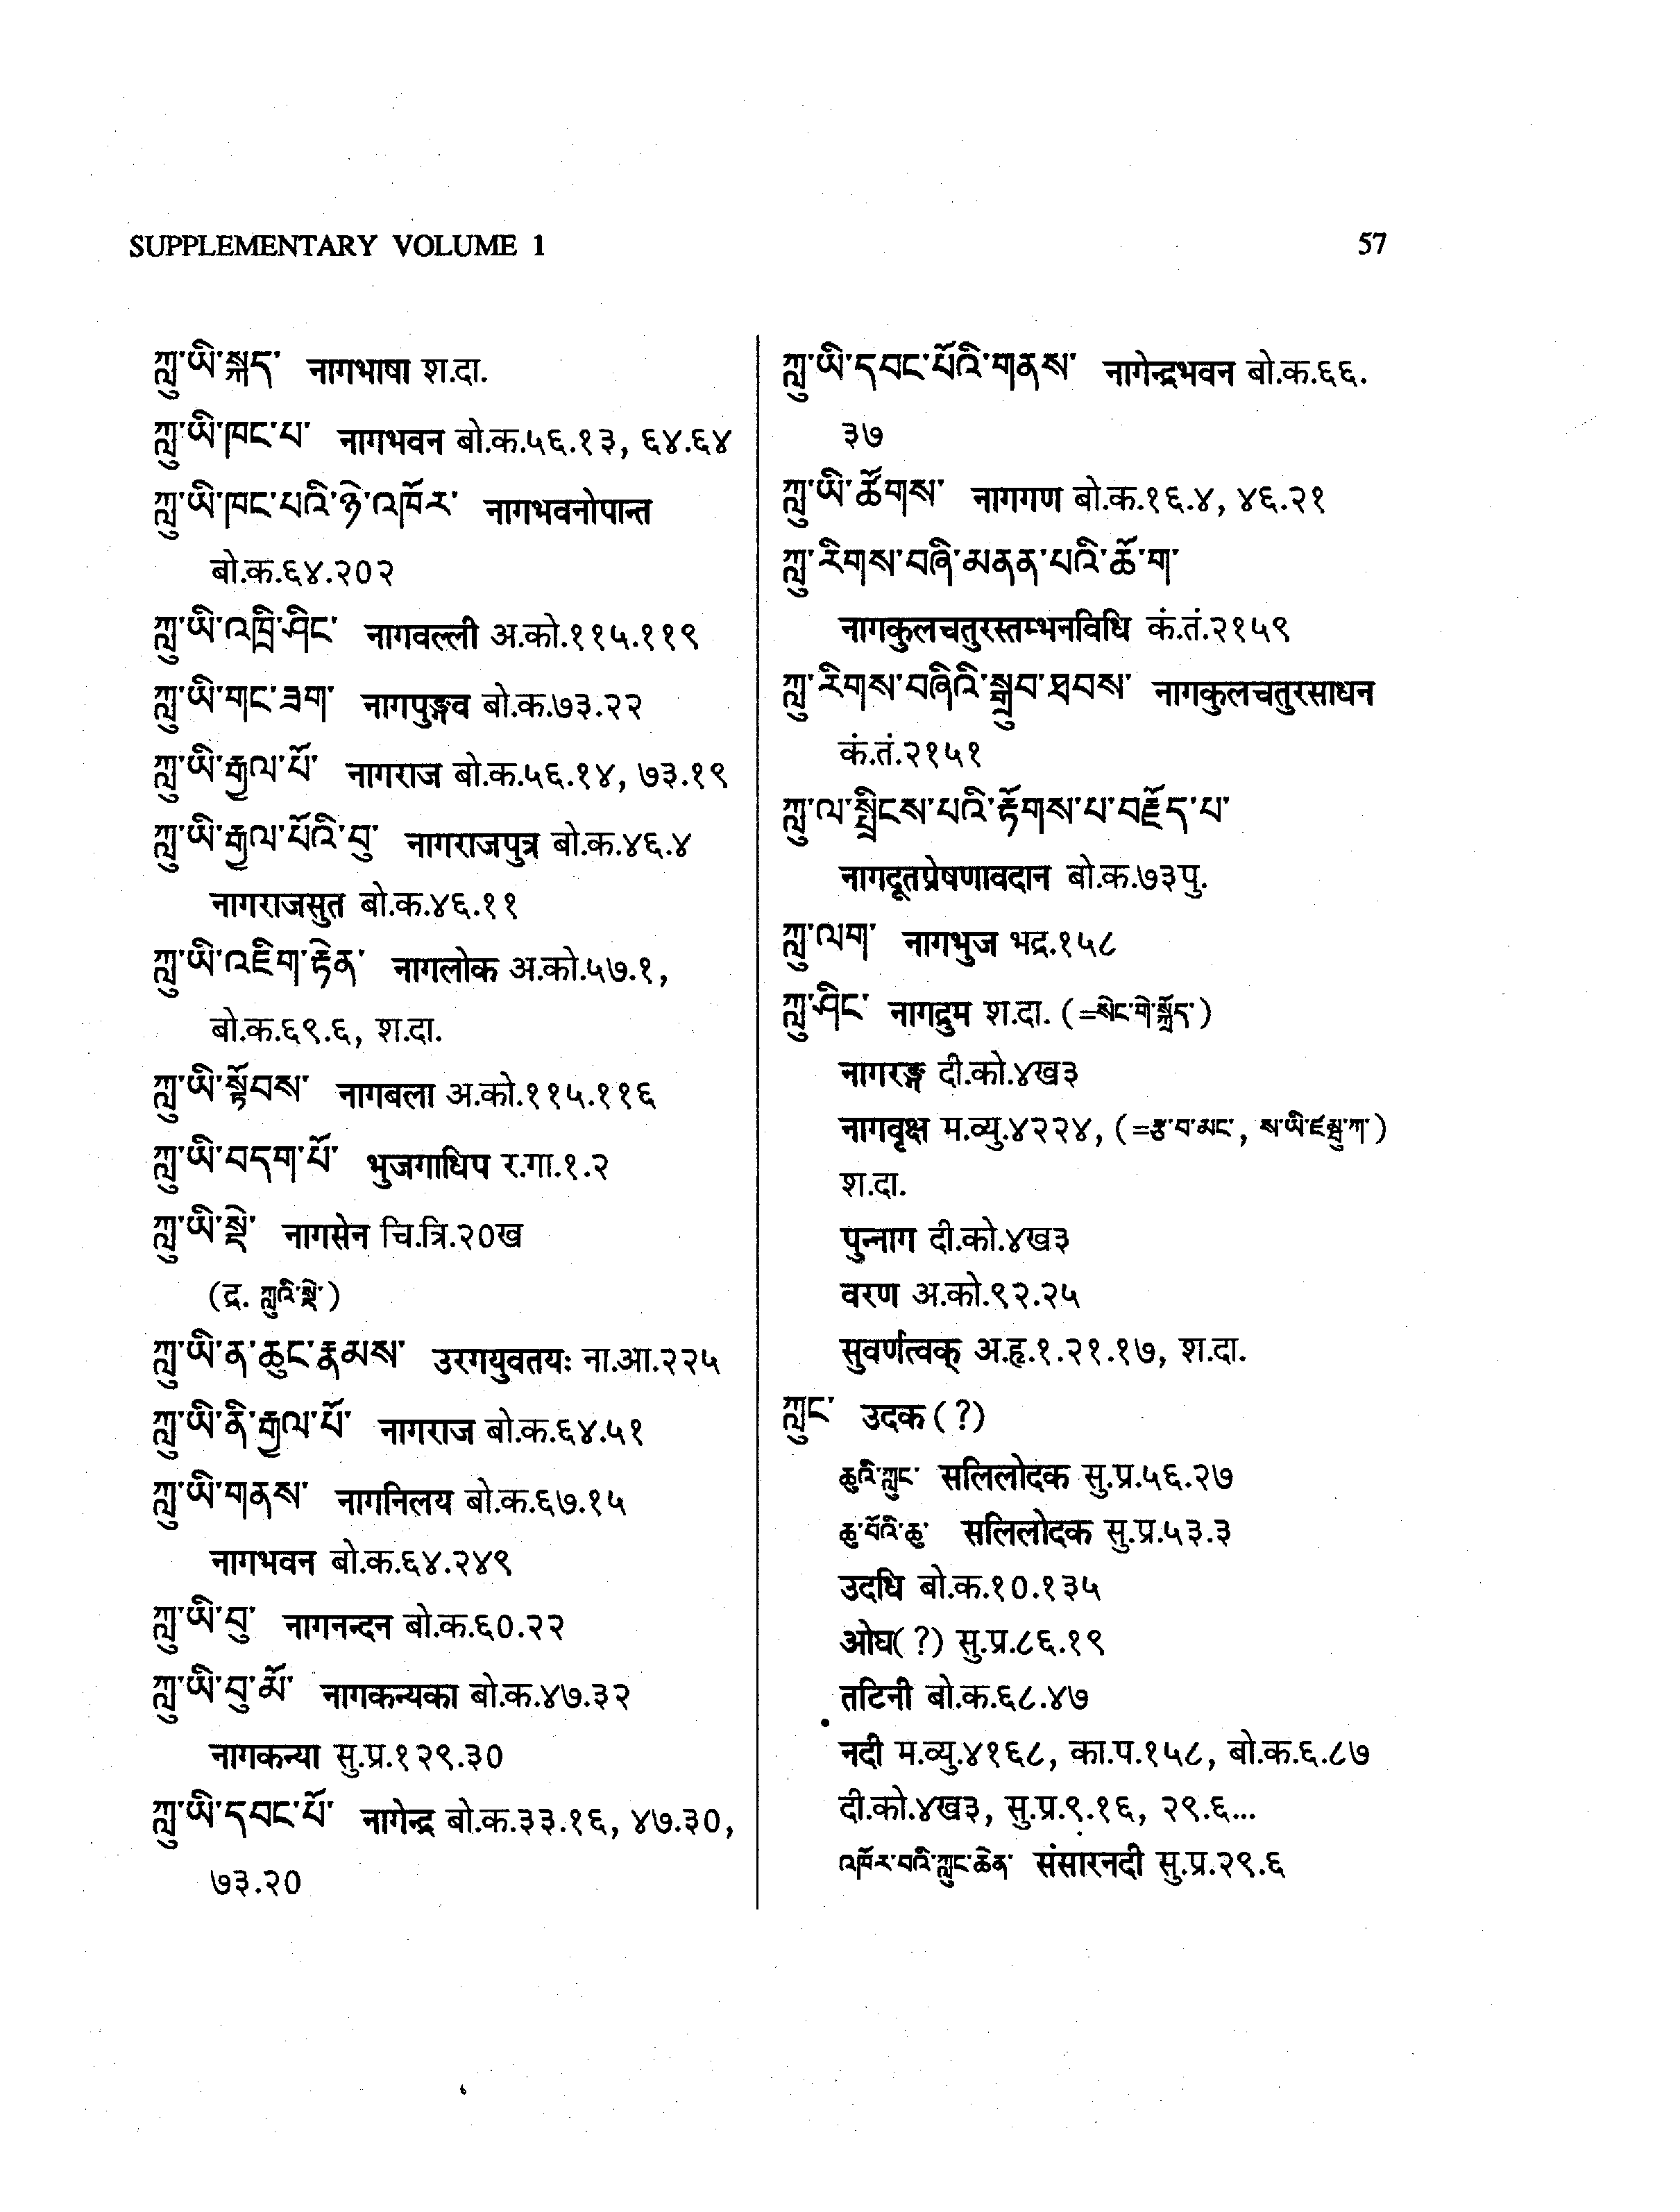 SUPPLEMENTARY VOLUME 1 57
ཀླུ་ཡི་སྐད་ नागभाषा श.दा.
ཀླུ་ཡི་ཁང་པ་ नागभवन बो.क.५६.१३, ६४.६४
ཀླུ་ཡི་ཁང་པའི་ཉེ་འཁོར་ नागभवनोपान्त
बो.क.६४.२०२
ཀླུ་ཡི་འཁྲི་ཤིང་ नागवल्ली अ.को.११५.११९
ཀླུ་ཡི་གང་ཟག་ नागपुङ्गव बो.क.७३.२२
ཀླུ་ཡི་རྒྱལ་པོ་ नागराज बो.क.५६.१४, ७३.१९
ཀླུ་ཡི་རྒྱལ་པོའི་བུ་ नागराजपुत्र बो.क.४६.४
नागराजसुत बो.क.४६.११
ཀླུ་ཡི་འཇིག་རྟེན་ नागलोक अ.को.५७.१,
बो.क.६९.६, श.दा.
ཀླུ་ཡི་སྟོབས་ नागबला अ.को.११५.११६
ཀླུ་ཡི་བདག་པོ་ भुजगाधिप र.गा.१.२
ཀླུ་ཡི་སྡེ་ नागसेन चि.त्रि.२०ख
(द्र. ཀླུའི་སྡེ་)
ཀླུ་ཡི་ན་ཆུང་རྣམས་ उरगयुवतयः ना.आ.२२५
ཀླུ་ཡི་ནི་རྒྱལ་པོ་ नागराज बो.क.६४.५१
ཀླུ་ཡི་གནས་ नागनिलय बो.क.६७.१५
नागभवन बो.क.६४.२४९
ཀླུ་ཡི་བུ་ नागनन्दन बो.क.६०.२२
ཀླུ་ཡི་བུ་མོ་ नागकन्यका बो.क.४७.३२
नागकन्या सु.प्र.१२९.३०
ཀླུ་ཡི་དབང་པོ་ नागेन्द्र बो.क.३३.१६, ४७.३०,
७३.२०
ཀླུ་ཡི་དབང་པོའི་གནས་ नागेन्द्रभवन बो.क.६६.
३७
ཀླུ་ཡི་ཚོགས་ नागगण बो.क.१६.४, ४६.२१
ཀླུ་རིགས་བཞི་མནན་པའི་ཆོ་ག་
नागकुलचतुरस्तम्भनविधि कं.तं.२१५९
ཀླུ་རིགས་བཞིའི་སྒྲུབ་ཐབས་ नागकुलचतुरसाधन
कं.तं.२१५१
ཀླུ་ལ་སྤྲིངས་པའི་རྟོགས་པ་བརྗོད་པ་
नागदूतप्रेषणावदान बो.क.७३पु.
ཀླུ་ལག་ नागभुज भद्र.१५८
ཀླུ་ཤིང་ नागद्रुम श.दा. (=སེང་གེ་སྐྲོད་)
नागरङ्ग दी.को.४ख३
नागवृक्ष म.व्यु.४२२४, (=རྩ་བ་མང་,
श.दा.
पुन्नाग दी.को.४ख३
वरण अ.को.९२.२५
सुवर्णत्वक् अ.हृ.१.२१.१७, श.दा.
ཀླུང་ उदक (?)
ཆུའི་ཀླུང་ सलिलोदक सु.प्र.५६.२७
ཆུ་བོའི་ཆུ་ सलिलोदक सु.प्र.५३.३
उदधि बो.क.१०.१३५
ओघ(?) सु.प्र.८६.१९
तटिनी बो.क.६८.४७
नदी म.व्यु.४१६८, का.प.१५८, बो.क.६.८७
दी.को.४ख३, सु.प्र.९.१६, २९.६...
འཁོར་བའི་ཀླུང་ཆེན་ संसारनदी सु.प्र.२९.६